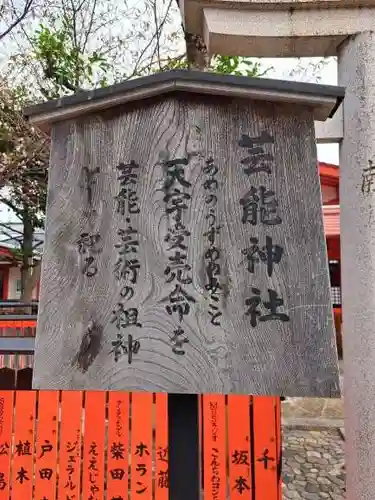 芸能神社
あめのうずめのみこと
天宇受売命を
芸能・芸術の祖神
祀る
千
坂本
近藤
ホラン
柴田
ええじゃ
ジェラル
戸田
植木
松